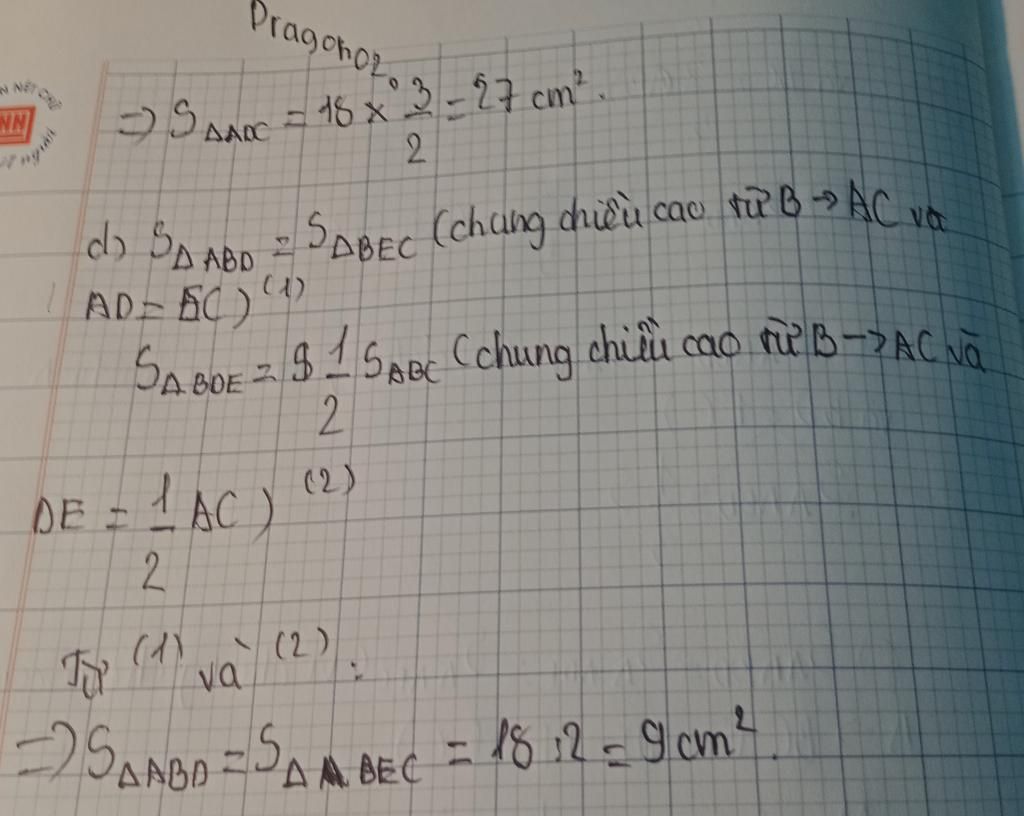 Dragono2
N NÉT CHỮ
NN
⇒ S ΔADC = 18 × 3/2 = 27 cm².
d) S ΔABD = S ΔBEC (chung chiều cao từ B → AC và
AD = EC) (1)
S ΔBDE = 1/2 S ABC (chung chiều cao từ B → AC và
DE = 1/2 AC) (2)
Từ (1) và (2):
⇒ S ΔABD = S Δ BEC = 18 : 2 = 9 cm².